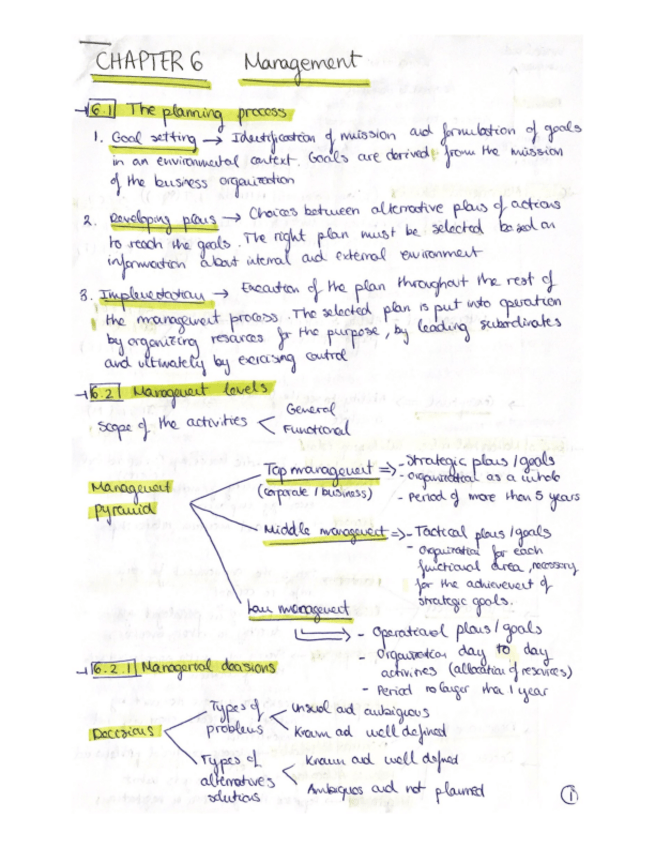 CHAPTER 6 Management
→ 6.1 The planning process
1. Goal setting → Identification of mission and formulation of goals
in an environmental context. Goals are derived from the mission
of the business organization
2. Developing plans → Choices between alternative plans of actions
to reach the goals. The right plan must be selected based on
information about internal and external environment
3. Implementation → Execution of the plan throughout the rest of
the management process. The selected plan is put into operation
by organizing resources for the purpose, by leading subordinates
and ultimately by exercising control
→ 6.2 Management levels
scope of the activities < General
Functional
Management
pyramid
Top management => - Strategic plans / goals
(corporate / business) - organization as a whole
- Period of more than 5 years
Middle management => - Tactical plans / goals
- Organization for each
functional area, necessary
for the achievement of
strategic goals.
Low management
→ - Operational plans / goals
- Organization day to day
activities (allocation of resources)
- Period no larger than 1 year
→ 6.2.1 Managerial decisions
Decisions
Types of
problems < unusual and ambiguous
Known and well defined
Types of
alternatives
solutions < Known and well defined
Ambiguos and not planned
1